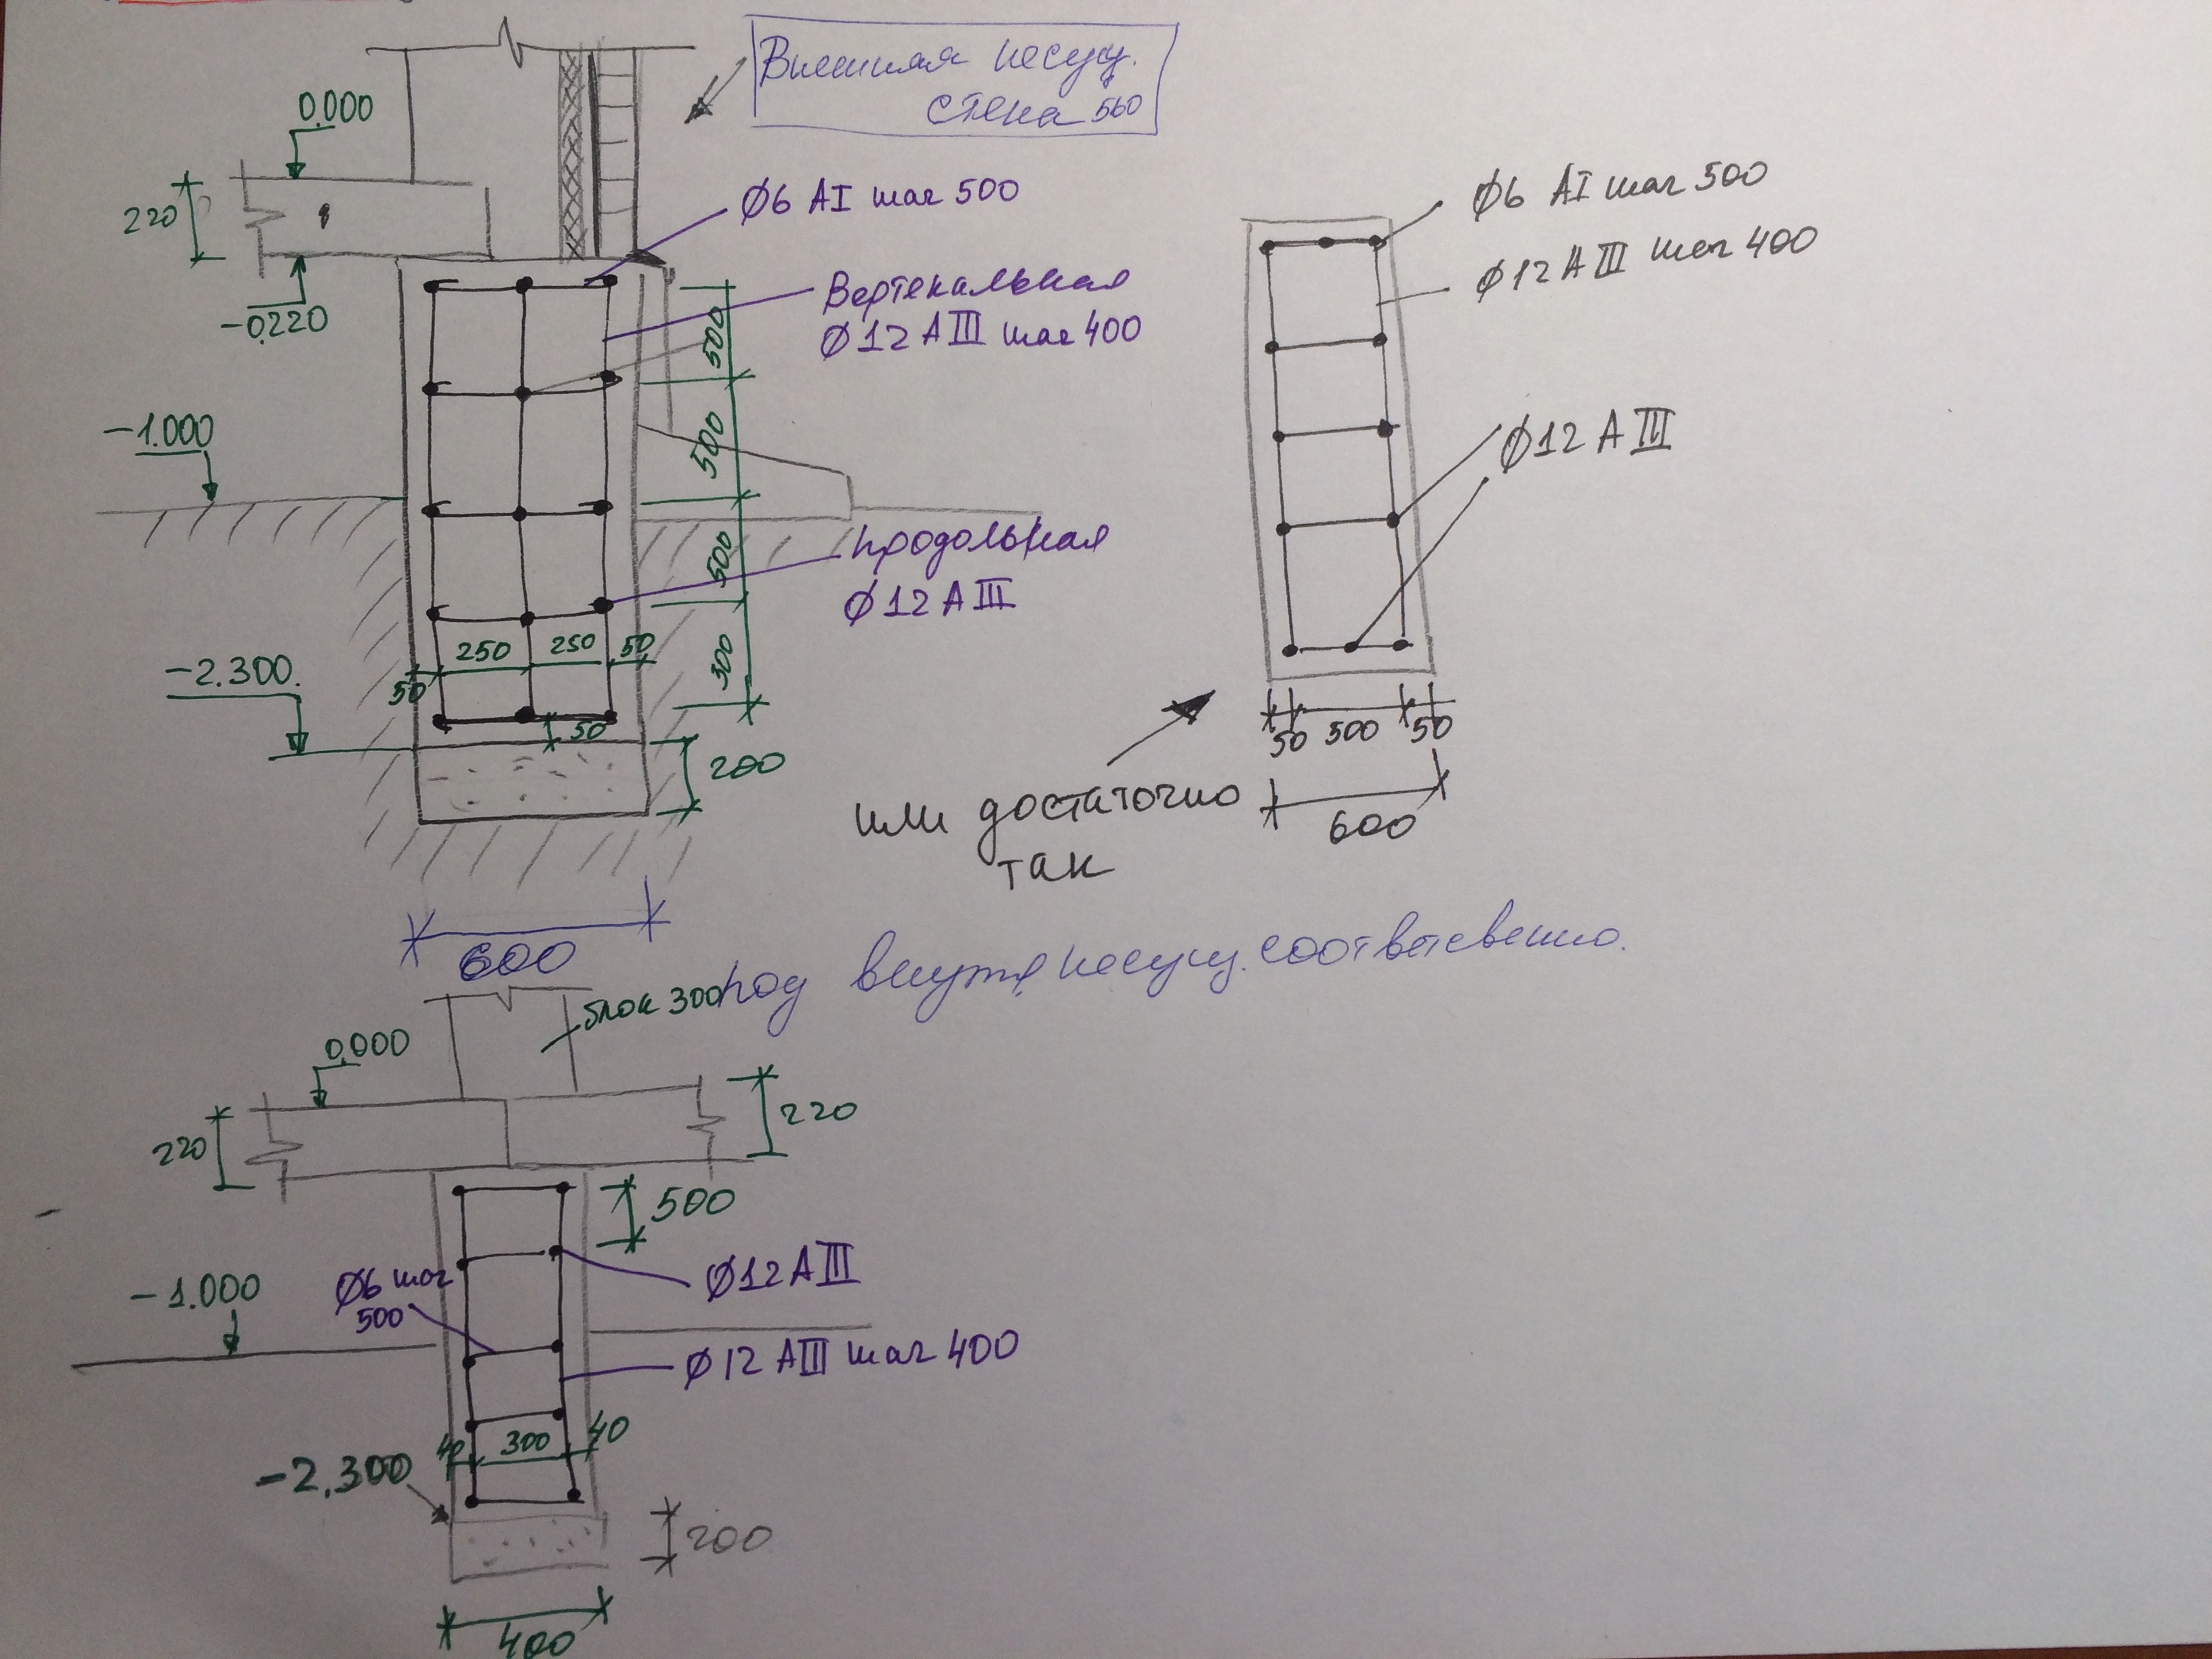 Внешняя несущ.
стена 560
0.000
220
-0220
Ø6 АI шаг 500
Вертекальная
Ø12 АIII шаг 400
500
500
500
300
-1.000
продольная
Ø12 АIII
250 250 50
50
-2.300.
50
200
600
Ø6 АI шаг 500
Ø12 АIII шаг 400
Ø12 АIII
50 500 50
600
или достаточно
так
под внутр. несущ. соответсвенно.
блок 300
0.000
220
220
500
Ø12 АIII
-1.000
Ø6 шаг
500
Ø12 АIII шаг 400
40 300 40
-2.300
200
400